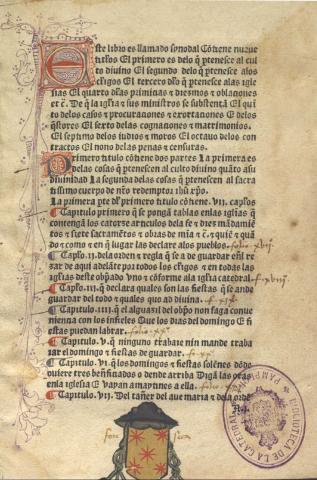 Este libro es llamado synodal Cõtiene nueue
titl'os El primero es delo q̃ ptenesce al cul
to diuino El segundo delo q̃ ptenesce alos
cl'rigos El tercero dl'o q̃ ptenesce alas igle
sias El quarto dl'as primicias ⁊ diezmos ⁊ oblaciones
et c̃. De q̃ la igl'ia ⁊ sus ministros se substentã El quĩ
to delos casos ⁊ procuraciones ⁊ exortaciones E delos
q̃stores El sexto delas cognaciones ⁊ matrimonios.
El septimo delos iudios ⁊ moros El octauo delos con
tractos El nono delas penas ⁊ censuras.
Primero titulo cõtiene dos partes La primera es
delas cosas q̃ ptenescen al culto diuino quãto asu
diuinidad La segunda delas cosas q̃ ptenescen al sacra
tissimo cuerpo de nr̃o redemptor ihũ xp̃o.
La primera pte dl' primero titulo cõtiene. VII. capl'os
¶ Capitulo primero q̃ se põgã tablas enlas igl'ias q̃
contengã los catorze articulos dela fe ⁊ diez mãdamiẽ
tos ⁊ siete sacramẽtos ⁊ obras de mi'a ⁊ c̃. ⁊ quiẽ ⁊ quã
do ⁊ como ⁊ en q̃ lugar las declare alos pueblos. folio xvij
¶ Capl'o. II. dela orden ⁊ regla q̃ se a de guardar enl' re
zar de aqui adelãte por todos los cl'rigos ⁊ en todas las
igl'ias deste obp̃ado vno ⁊ cõforme ala igl'ia catedral. f. xviij
¶ Capl'o. III. q̃ declara quales son las fiestas q̃ se ande
guardar del todo ⁊ quales que ad diuina. f. xix
¶ Capitulo. IIII. q̃ el alguazil del obp̃o non faga conue
niencia con los infieles Que los dias del domingo E fi
estas puedan labrar. folio xx
¶ Capitulo. V. q̃ ninguno trabaie nin mande traba
iar el domingo ⁊ fiestas de guardar. f. xx
¶ Capitulo. VI. q̃ los domingos ⁊ fiestas solẽnes dõde
quiere tres benificiados ⁊ dende arriba Digã las oras
enla iglesia E vayan amaytines a ella. folio
¶ Capitulo. VII. Del tañer del aue maria ⁊ dela ordẽ
fon seca
BIBLIOTECA DE LA CATEDRAL
PAMPL